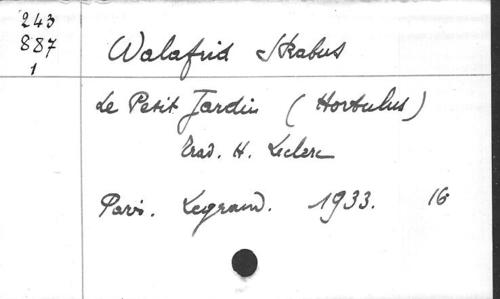 243
887
1
Walafrid Strabus
Le Petit Jardin ( Hortulus )
Trad. H. Leclerc
Paris. Legrand. 1933. 16